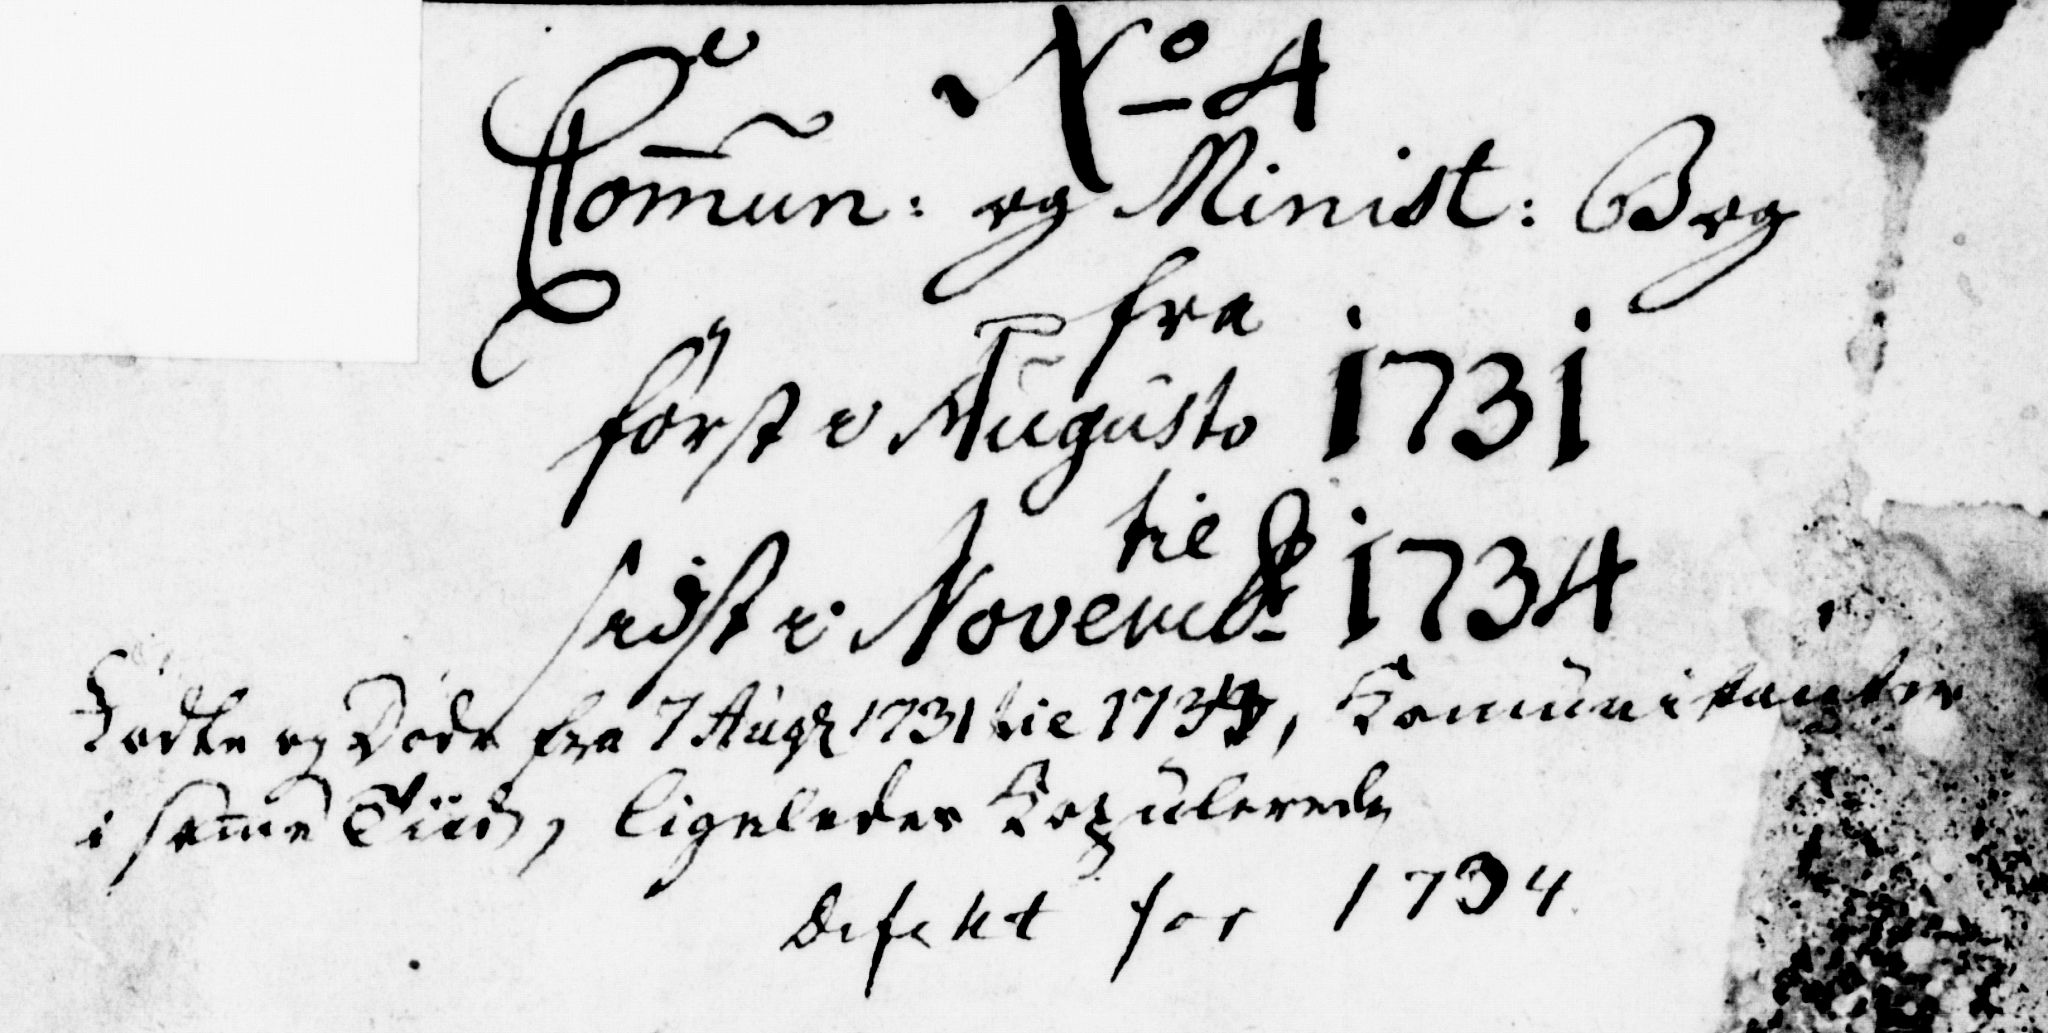 No 4
Com̄un: og Minist: Bog
fra
först i Augusto 1731
tie
sidst i Novembr 1734
Fødte og Døde fra 7 Augs 1731 tie 1734, Komūnikanter
i sam̄e Tiid, ligeledes Kopulerede
Defekt for 1734